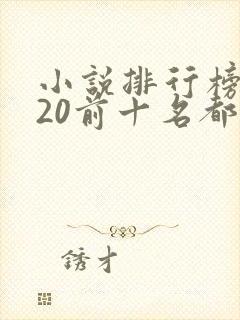 小說排行榜
20前十名都
銹才